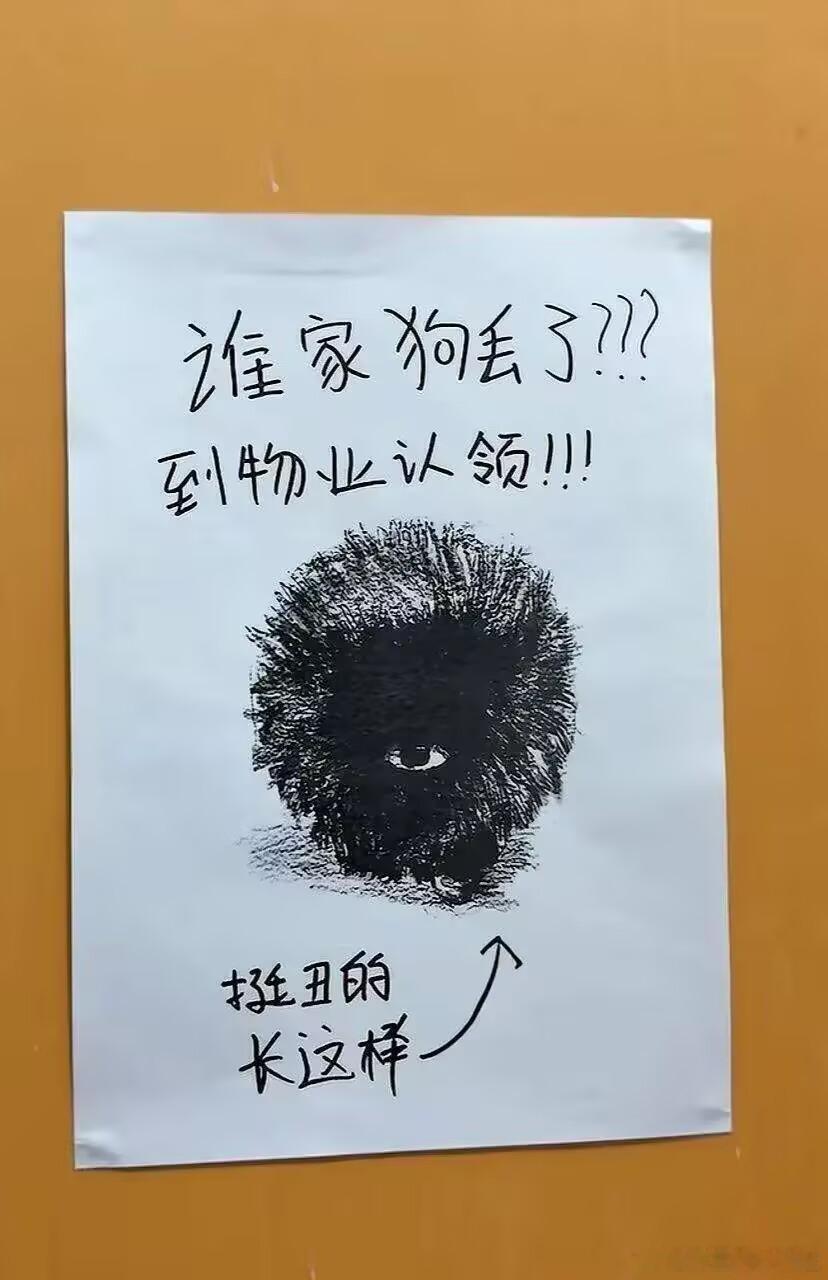 谁家狗丢了???
到物业认领!!!
挺丑的
长这样